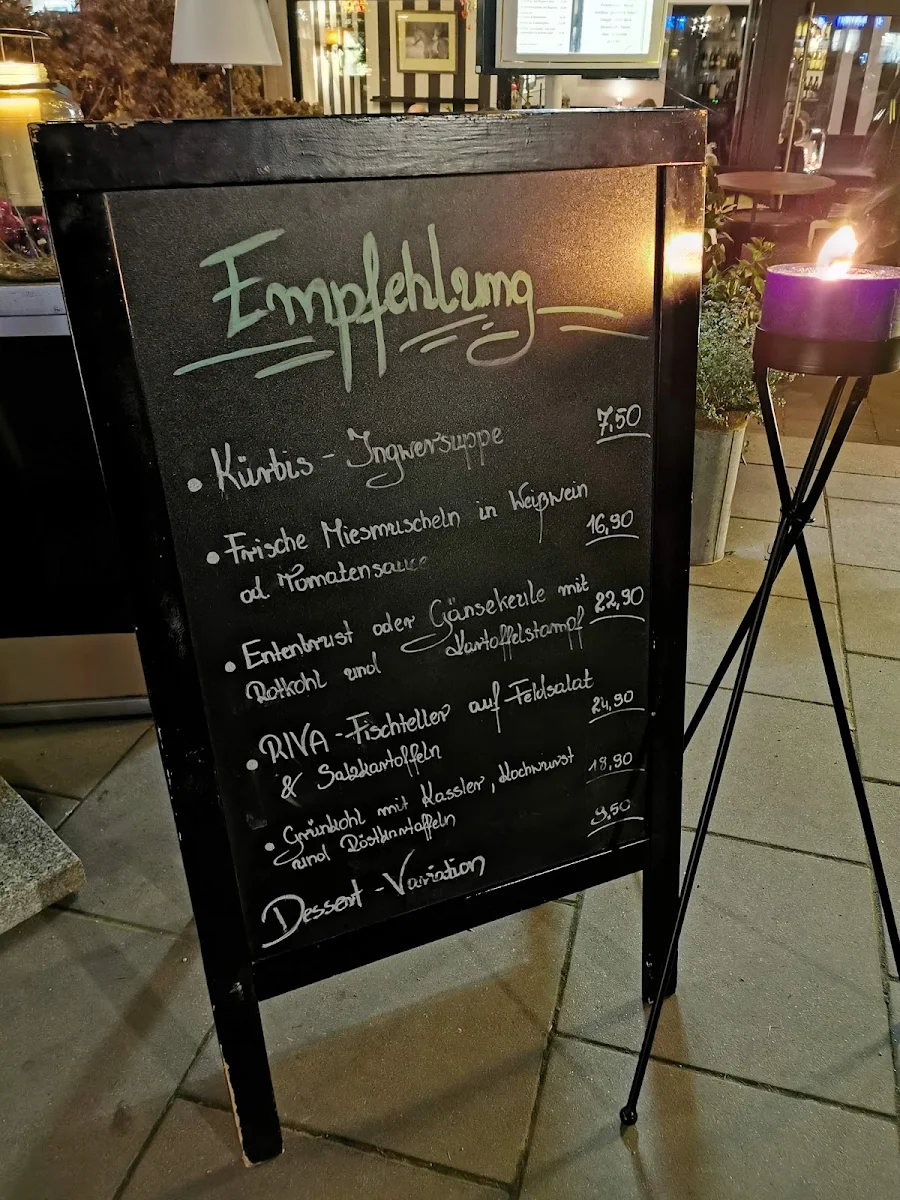 Empfehlung
• Kürbis - Ingwersuppe 7,50
• Frische Miesmuscheln in Weißwein
od. Tomatensauce 16,90
• Entenbrust oder Gänsekeule mit 22,90
Rotkohl und Kartoffelstampf
• RIVA - Fischteller auf Feldsalat
& Salzkartoffeln 24,90
• Grünkohl mit Kassler, Kochwurst 18,90
und Röstkartoffeln
Dessert - Variation 9,50